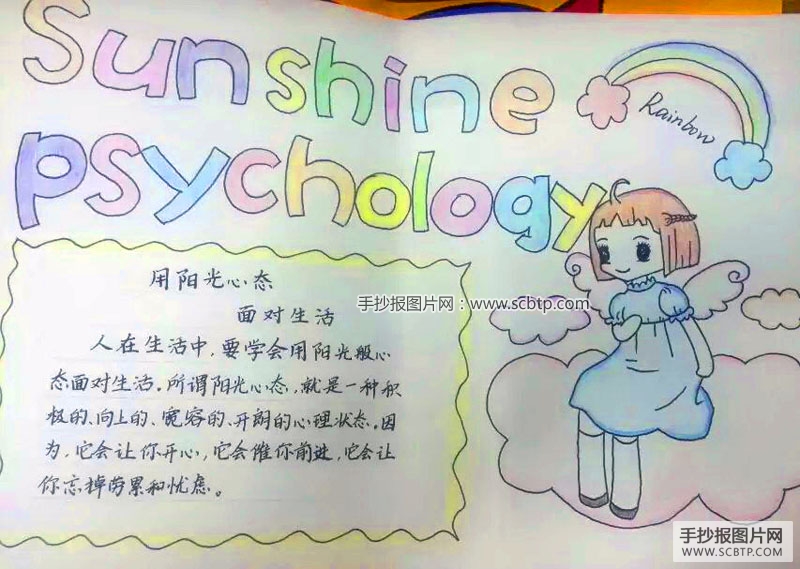 Sunshine
Rainbow
psychology
用阳光心态
面对生活
手抄报图片网:www.scbtp.com
人在生活中,要学会用阳光般心
态面对生活。所谓阳光心态,就是一种积
极的、向上的、宽容的、开朗的心理状态。因
为,它会让你开心,它会催你前进,它会让
你忘掉劳累和忧虑。
手抄报图片网
WWW.SCBTP.COM